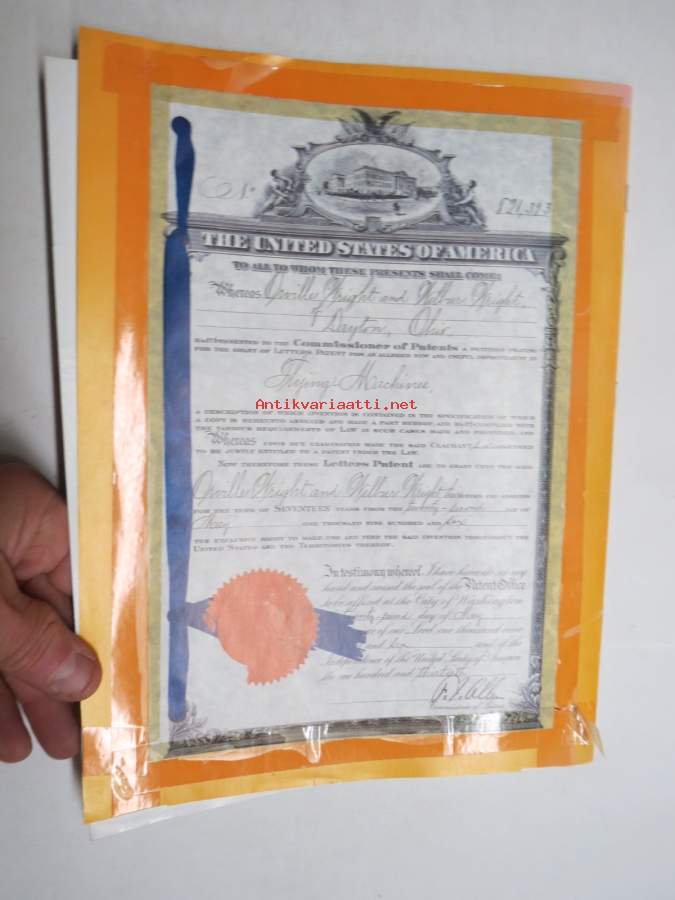 No
821,393
THE UNITED STATES OF AMERICA
TO ALL TO WHOM THESE PRESENTS SHALL COME:
Whereas Orville Wright and Wilbur Wright,
of Dayton, Ohio
PRESENTED TO THE Commissioner of Patents A PETITION PRAYING
FOR THE GRANT OF LETTERS PATENT FOR AN ALLEGED NEW AND USEFUL IMPROVEMENT IN
Flying Machines
Antikvariaatti.net
A DESCRIPTION OF WHICH INVENTION IS CONTAINED IN THE SPECIFICATION OF WHICH
A COPY IS HEREUNTO ANNEXED AND MADE A PART HEREOF, AND COMPLIED WITH
THE VARIOUS REQUIREMENTS OF LAW IN SUCH CASES MADE AND PROVIDED, AND
Whereas UPON DUE EXAMINATION MADE THE SAID CLAIMANT
TO BE JUSTLY ENTITLED TO A PATENT UNDER THE LAW.
NOW THEREFORE THESE Letters Patent ARE TO GRANT UNTO THE SAID
Orville Wright and Wilbur Wright, THEIR HEIRS OR ASSIGNS
FOR THE TERM OF SEVENTEEN YEARS FROM THE twenty-second DAY OF
May ONE THOUSAND NINE HUNDRED AND six
THE EXCLUSIVE RIGHT TO MAKE USE AND VEND THE SAID INVENTION THROUGHOUT THE
UNITED STATES AND THE TERRITORIES THEREOF.
In testimony whereof, I have hereunto set my
hand and caused the seal of the Patent Office
to be affixed at the City of Washington
day of May
of our Lord one thousand nine
and six and of the
Independence of the United States of America
the one hundred and thirtieth.